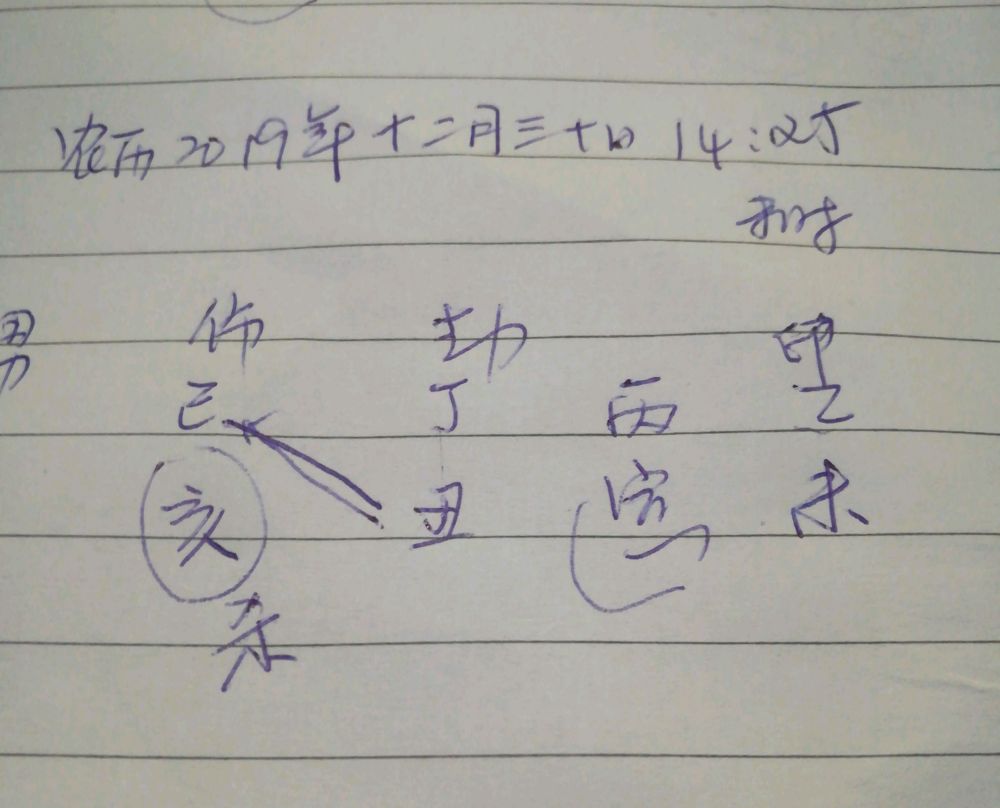 农历2019年十二月三十日 14:25
未时
男 伤 劫 印
己 丁 丙 乙
亥 丑 寅 未
杀